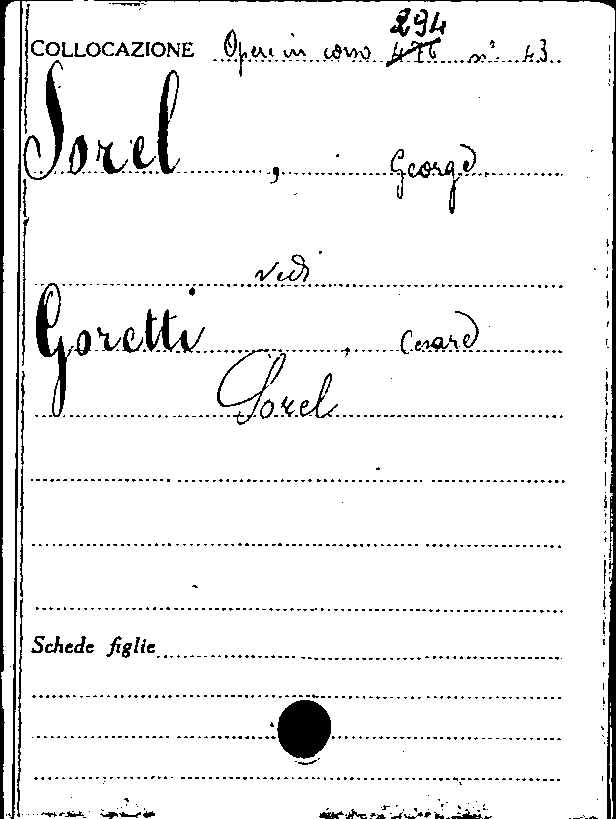 294
COLLOCAZIONE Opere in corso 476 n° 43
Sorel, George
vedi
Goretti, Cesare
Sorel
Schede figlie